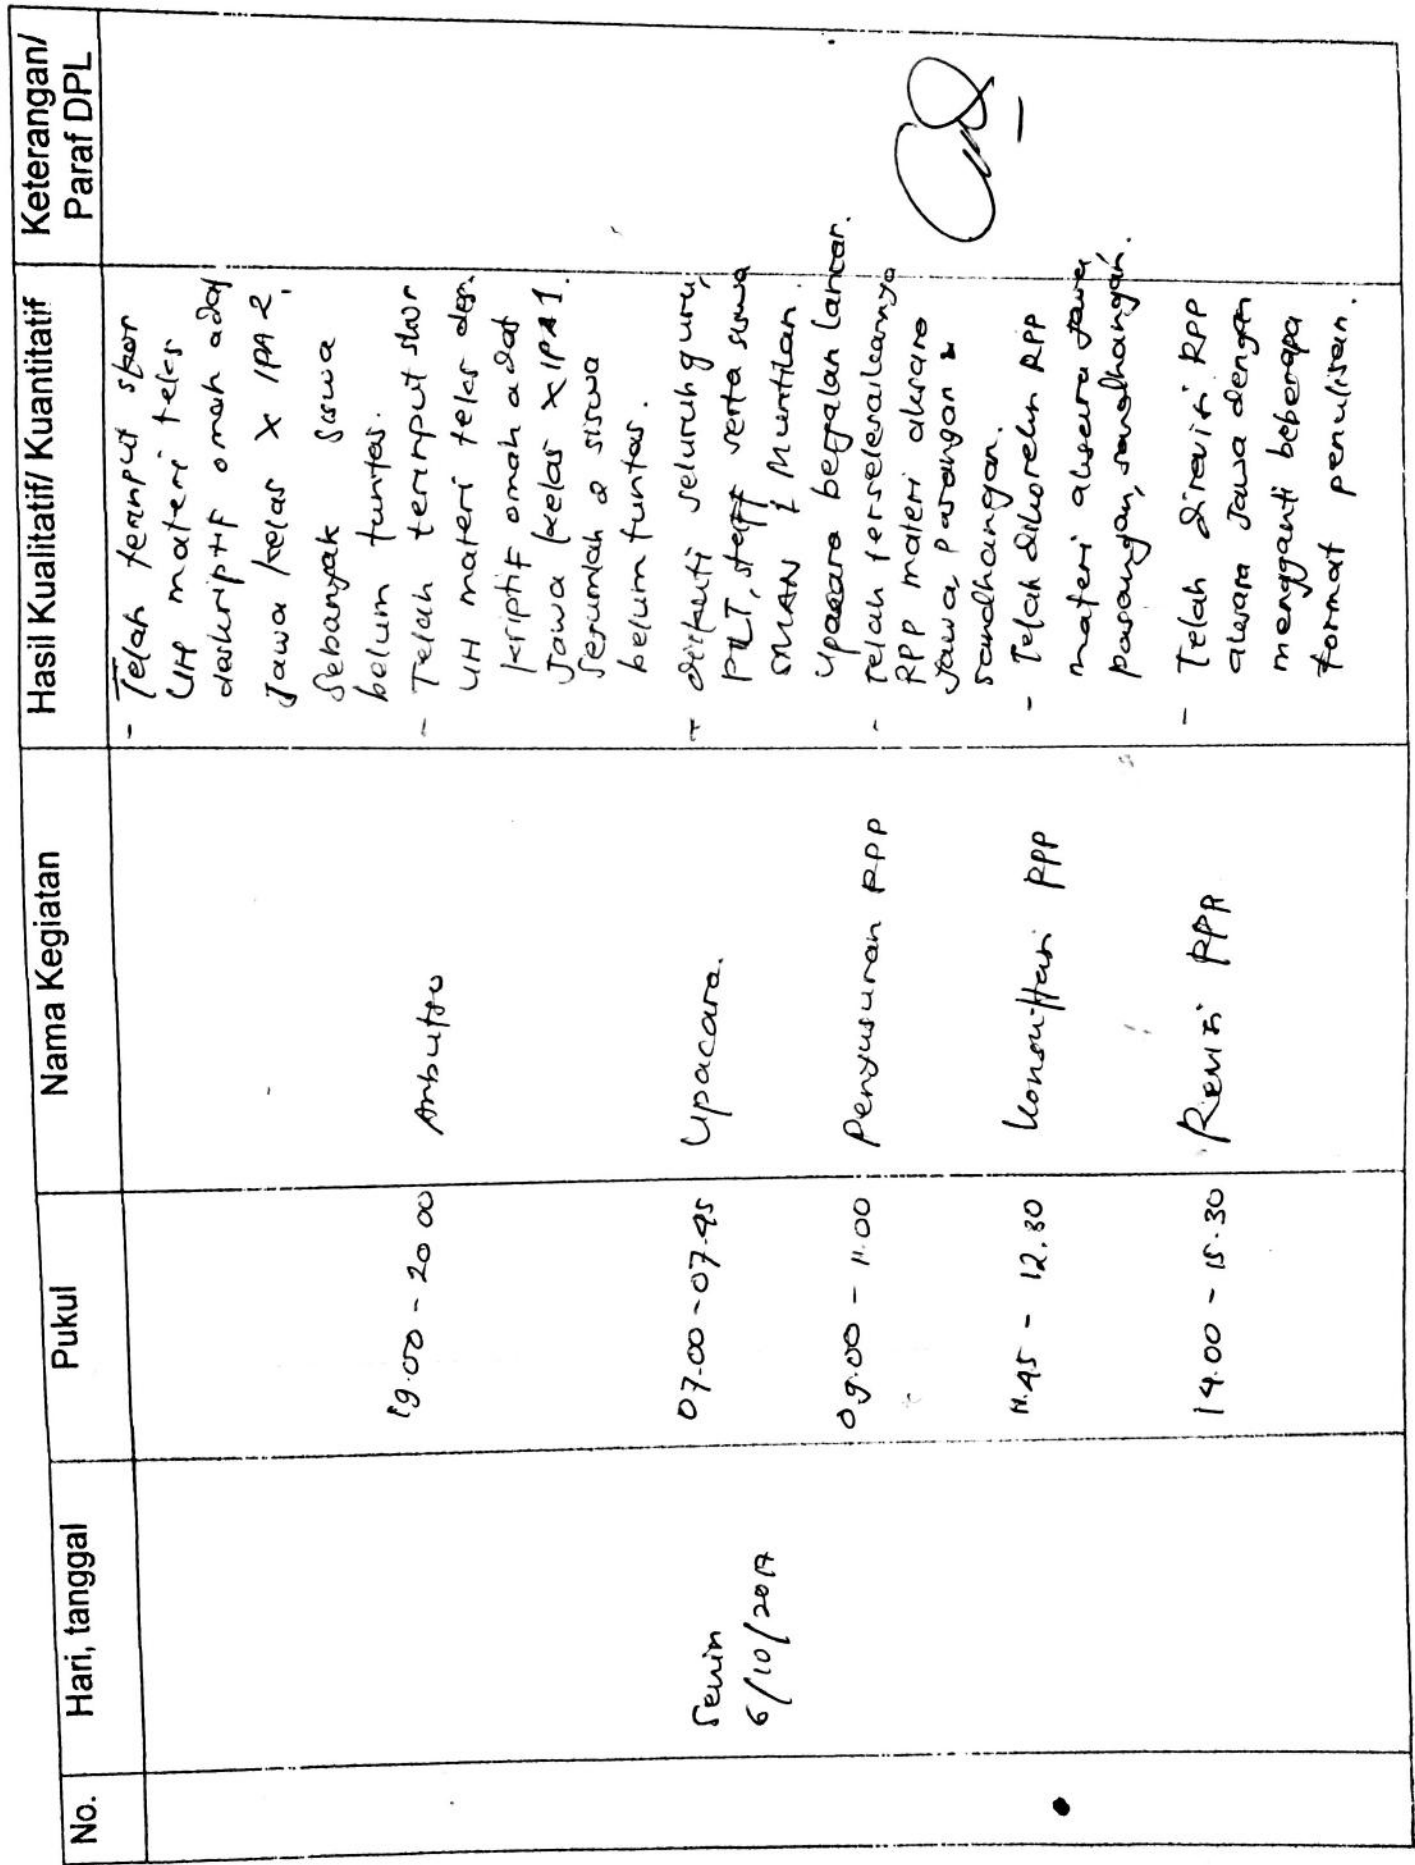 No.
Hari, tanggal
Pukul
Nama Kegiatan
Hasil Kualitatif/ Kuantitatif
Keterangan/
Paraf DPL
- Telah terinput skor
UH materi teks
deskriptif omah adat
Jawa kelas X IPA 2,
Sebanyak siswa
belum tuntas.
19.00 - 20 00
- Telah terinput skor
UH materi teks des
kriptif omah adat
Jawa kelas X IPA 1.
Sejumlah 2 siswa
belum tuntas.
Senin
6/10/2017
07.00 - 07.45
Upacara.
- diikuti seluruh guru,
PLT, staff serta siswa
SMAN 1 Muntilan.
Upacara berjalan lancar.
09.00 - 11.00
Penyusunan RPP
- Telah terselesaikannya
RPP materi aksara
Jawa, pasangan &
sandhangan.
11.45 - 12.30
Konsultasi RPP
- Telah dikoreksi RPP
materi aksara Jawa
pasangan, sandhangan.
14.00 - 15.30
Revisi RPP
- Telah direvisi RPP
aksara Jawa dengan
mengganti beberapa
format penulisan.